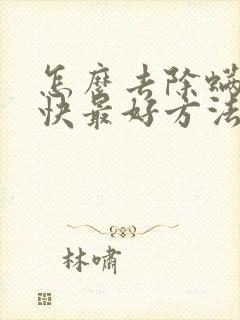 怎麽去除螨
快最好方法
林啸